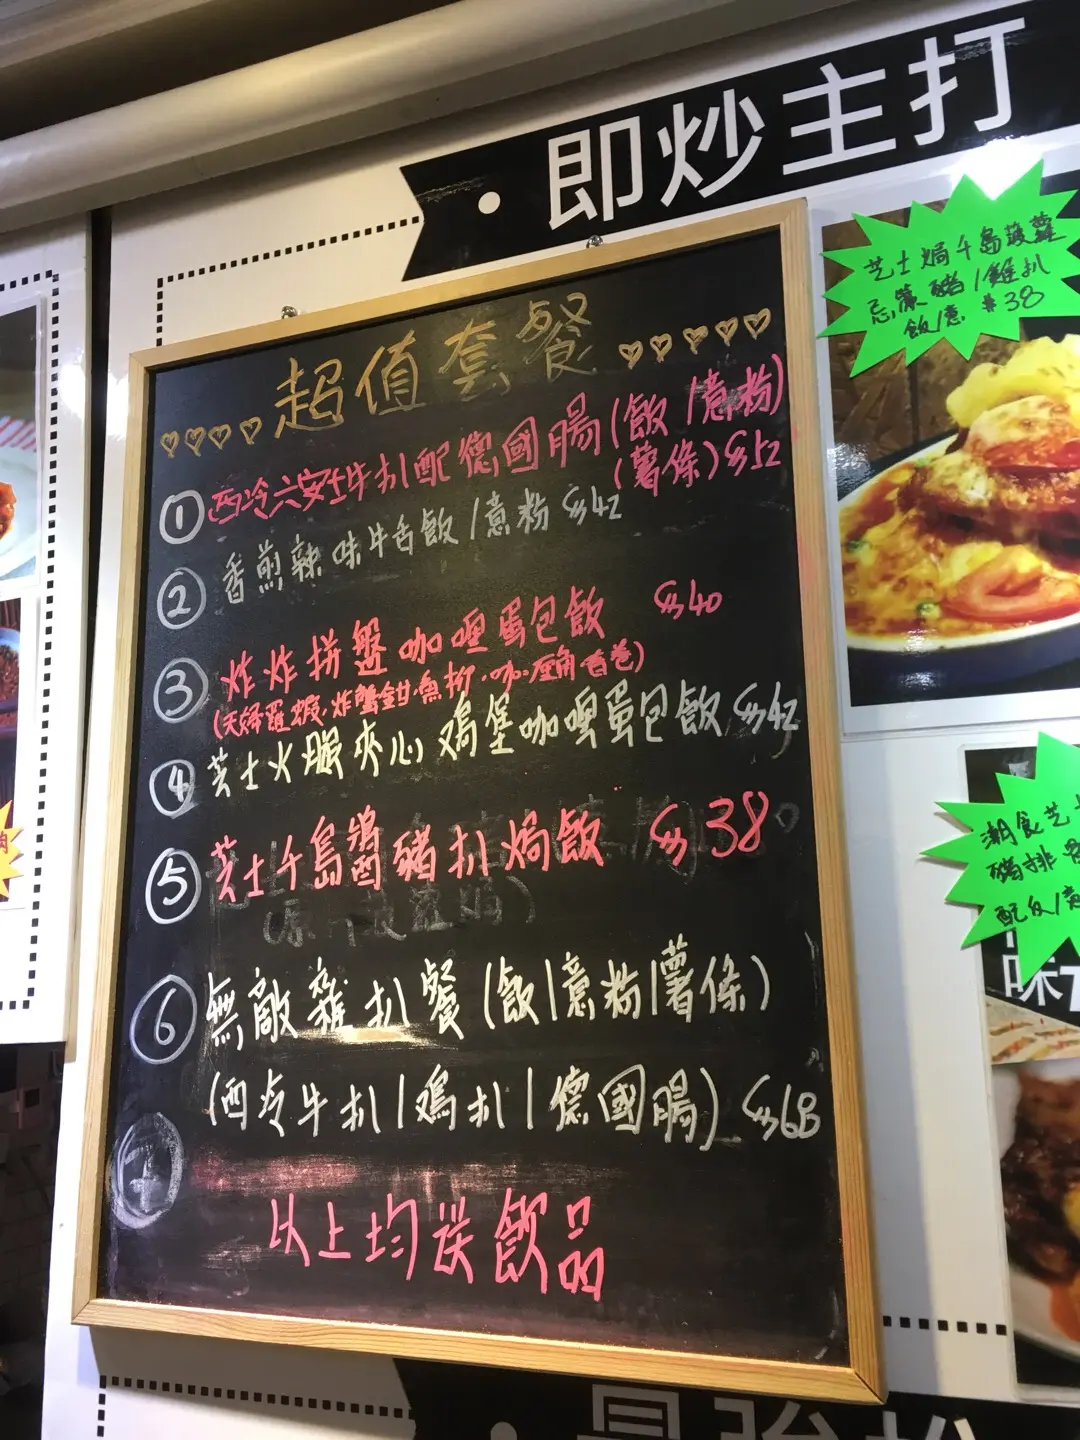 · 即炒主打
超值套餐
① 西冷六安士牛扒配德國腸(飯/意粉)
(薯條)$52
② 香煎辣味牛舌飯/意粉 $42
③ 炸炸拼盤咖喱蛋包飯 $40
(天婦羅蝦.炸蟹鉗.魚扒.咖喱角春卷)
④ 芝士火腿夾心鸡堡咖喱蛋包飯 $42
⑤ 芝士千島鴛鴦豬扒焗飯 $38
⑥ 無敵雜扒餐(飯/意粉/薯條)
(西冷牛扒/鸡扒/德國腸) $68
以上均送飲品
芝士焗千島菠蘿
忌廉豬/雞扒
飯/意 $38
潮食芝士
豬排
配反/意
味